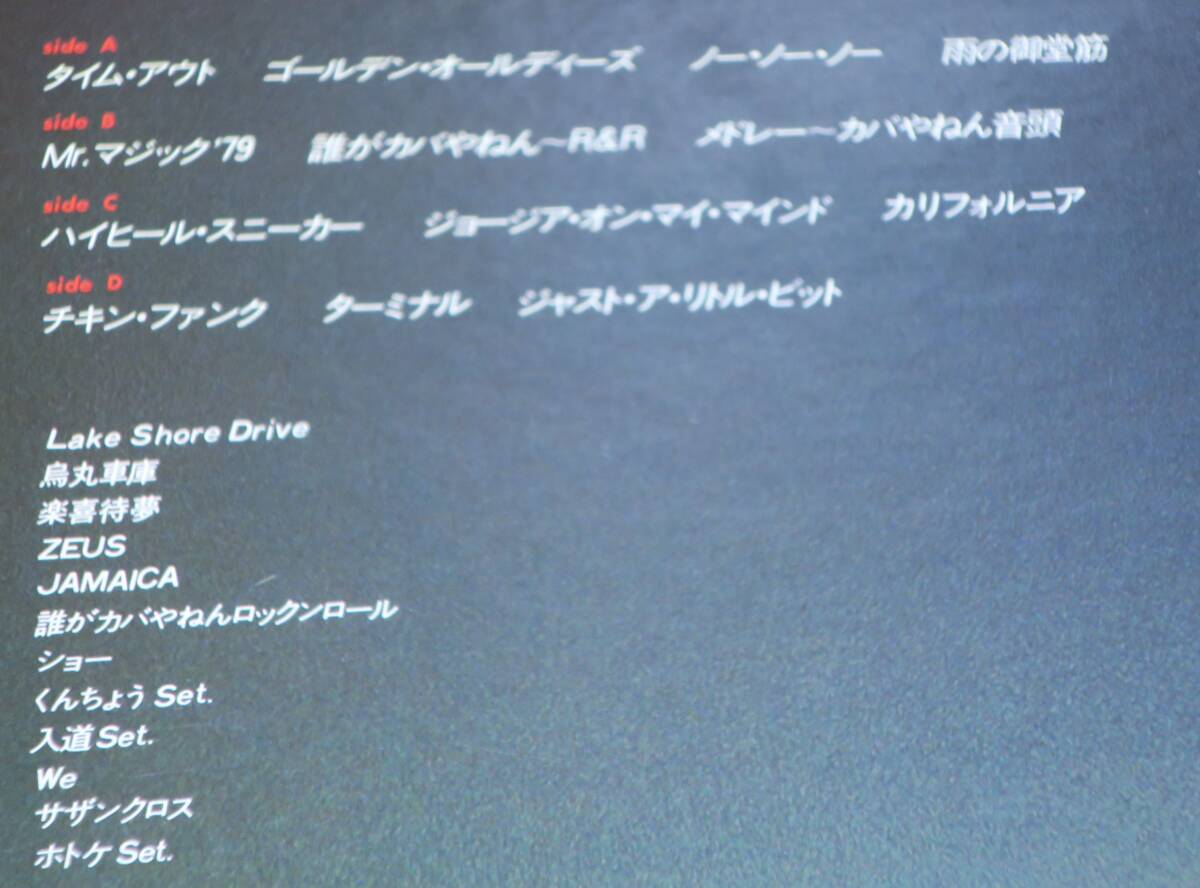 side A
タイム・アウト ゴールデン・オールディーズ ノー・ノー・ノー 雨の御堂筋
side B
Mr.マジック'79 誰がカバやねん〜R&R メドレー〜カバやねん音頭
side C
ハイヒール・スニーカー ジョージア・オン・マイ・マインド カリフォルニア
side D
チキン・ファンク ターミナル ジャスト・ア・リトル・ビット
Lake Shore Drive
烏丸車庫
楽喜待夢
ZEUS
JAMAICA
誰がカバやねんロックンロール
ショー
くんちょう Set.
入道 Set.
We
サザンクロス
ホトケ Set.